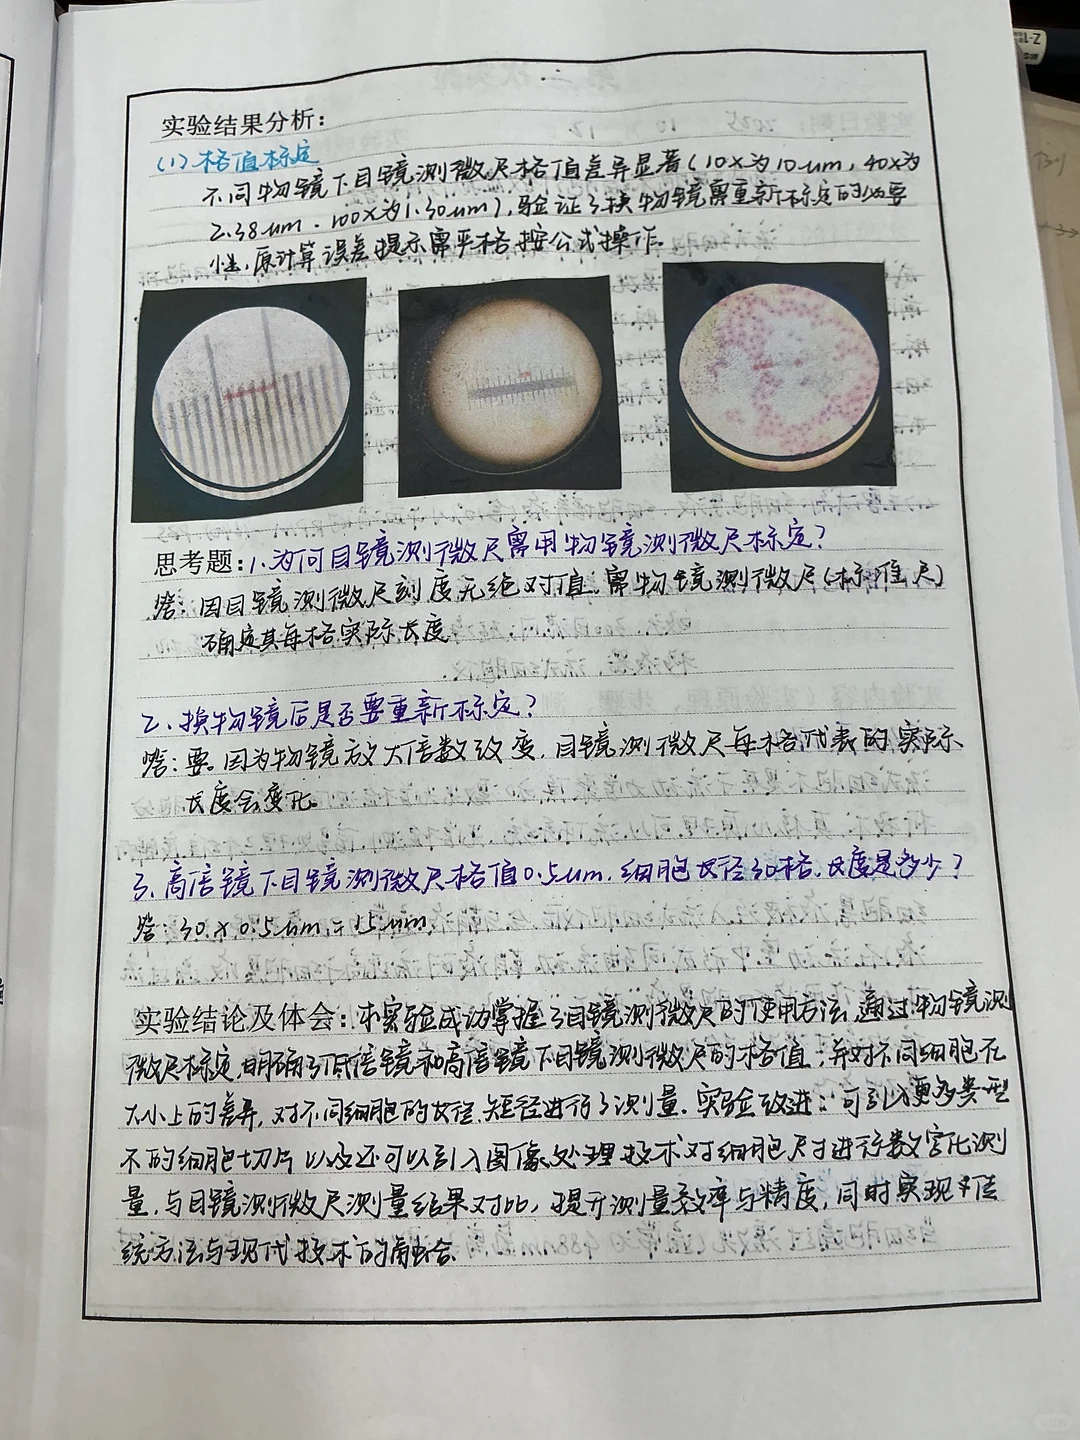 实验结果分析：
(1)格值标定
不同物镜下目镜测微尺格值差异显著(10×为10um，40×为
2.38um．100×为1.30um)，验证了换物镜需重新标定的必要
性，原计算误差提示需严格按公式操作。
思考题：1.为何目镜测微尺需用物镜测微尺标定？
答：因目镜测微尺刻度无绝对值，需物镜测微尺(标准尺)
确定其每格实际长度
2、换物镜后是否要重新标定？
答：要。因为物镜放大倍数改变，目镜测微尺每格代表的实际
长度会变化。
3、高倍镜下目镜测微尺格值0.5um．细胞长径30格，长度是多少？
答：30×0.5um＝15um
实验结论及体会：本实验成功掌握了目镜测微尺的使用方法，通过物镜测
微尺标定，明确了低倍镜和高倍镜下目镜测微尺的格值，并对不同细胞在
大小上的差异，对不同细胞的长径、短径进行了测量．实验改进：可引入更多类型
不的细胞切片 以及还可以引入图像处理技术对细胞尺寸进行数字化测
量，与目镜测微尺测量结果对比，提升测量效率与精度，同时实现传
统方法与现代技术的融合．